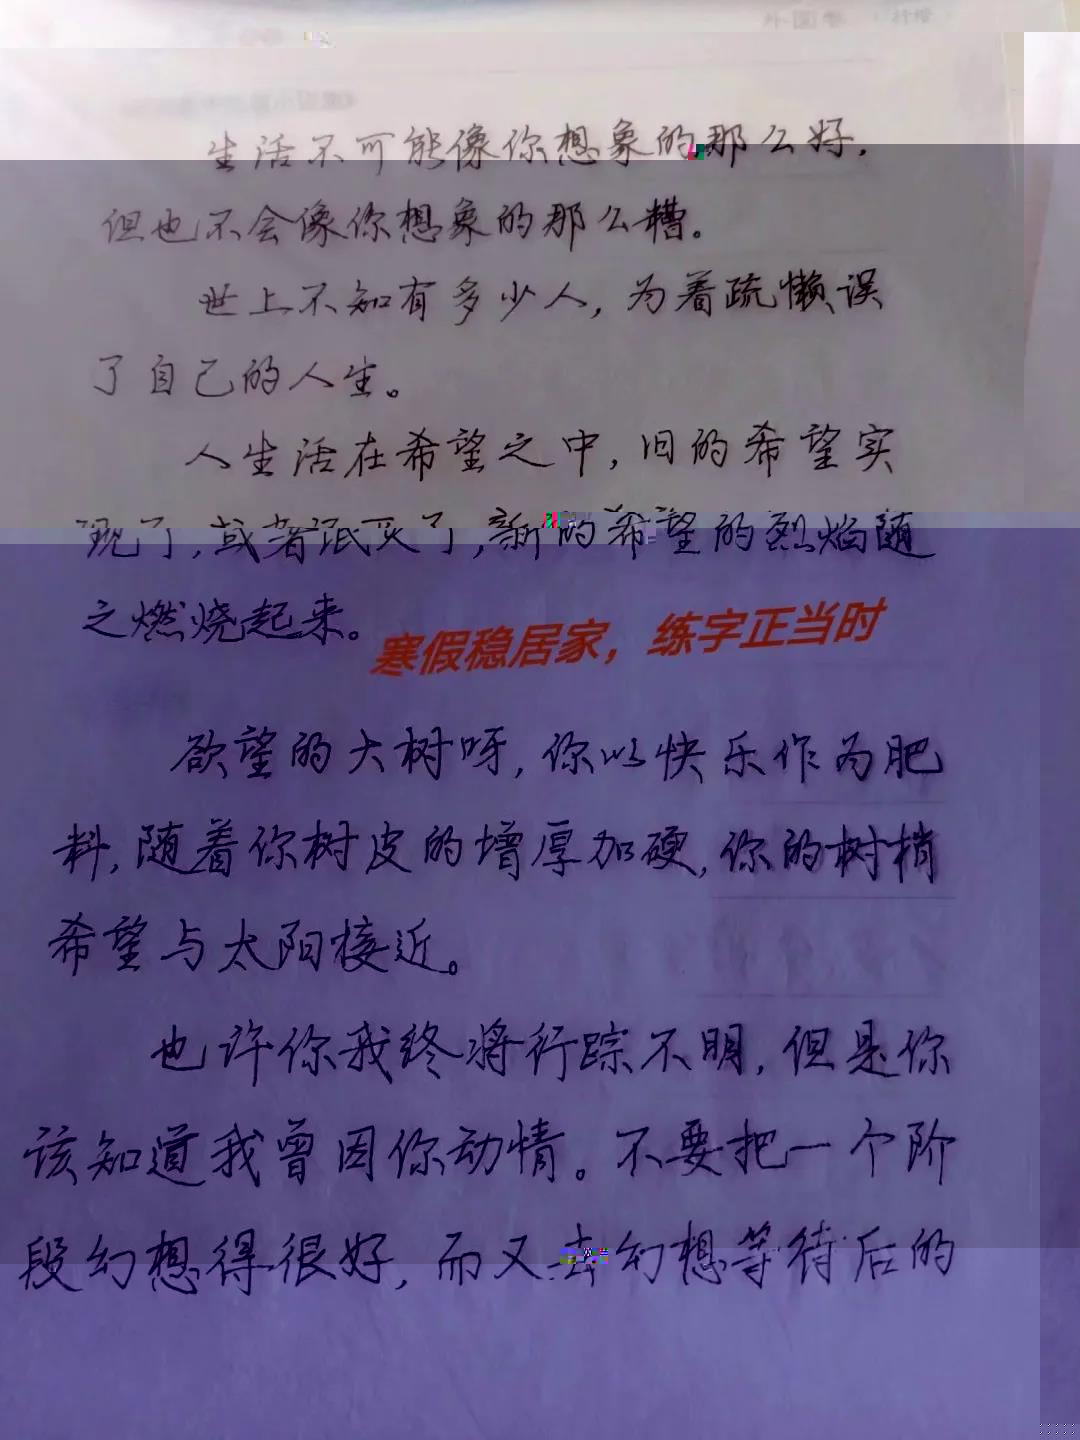 生活不可能像你想象的那么好，
但也不会像你想象的那么糟。
世上不知有多少人，为着疏懒误
了自己的人生。
人生活在希望之中，旧的希望实
现了，或者泯灭了，新的希望的烈焰随
之燃烧起来。
寒假稳居家，练字正当时
欲望的大树呀，你以快乐作为肥
料，随着你树皮的增厚加硬，你的树梢
希望与太阳接近。
也许你我终将行踪不明，但是你
该知道我曾因你动情。不要把一个阶
段幻想得很好，而又去幻想等待后的